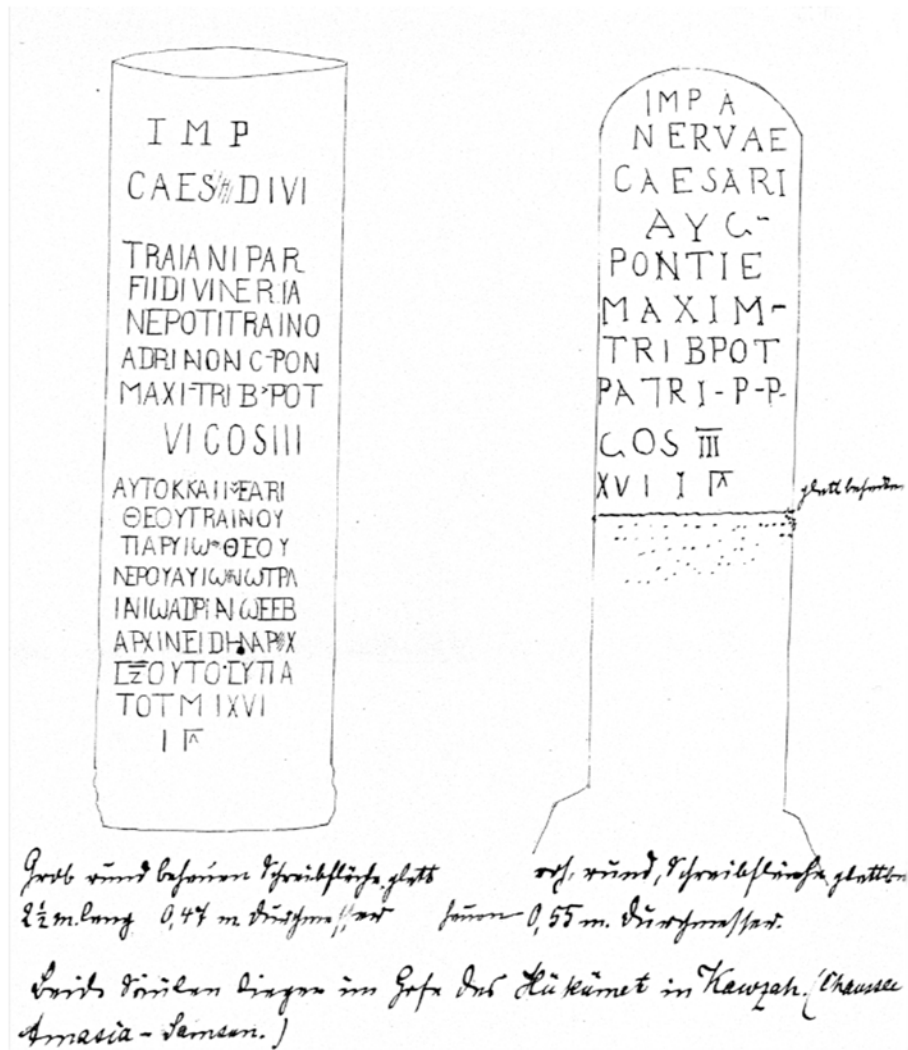 I M P
CAES DIVI
TRAIANI PAR
FIIDIVINERIA
NEPOTITRAINO
ADRINONC-PON
MAXI-TRIB>POT
VI COSIII
ΑΥΤΟΚΚΑΙ ΕΑΡΙ
ΘΕΟΥΤΡΑΙΝΟΥ
ΠΑΡΥΙΩ ΘΕΟΥ
ΝΕΡΟΥΑΥΙΩ ΝΩΤΡΛ
ΙΝΙΩΑΔΡΙΑΝΩΕΕΒ
ΑΡΧΙΝΕΙ
ΟΥΤΟ ΥΠΑ
ΤΟΤΜ ΙXVI
Ι Γ
IMP A
NERVAE
CAESARI
AYG-
PONTIE
MAXIM-
TRIBPOT
PATRI-P-P-
COS III
XVI I
glatt behauen
Grob rund behauen Schreibfläche glatt
2½ m. lang 0,47 m. Durchmesser
roh, rund, Schreibfläche glattbe
hauen 0,55 m. Durchmesser.
Beide Säulen liegen im Hofe des Hükümet in Kawzah. (Chaussee
Amasia - Samsun.)